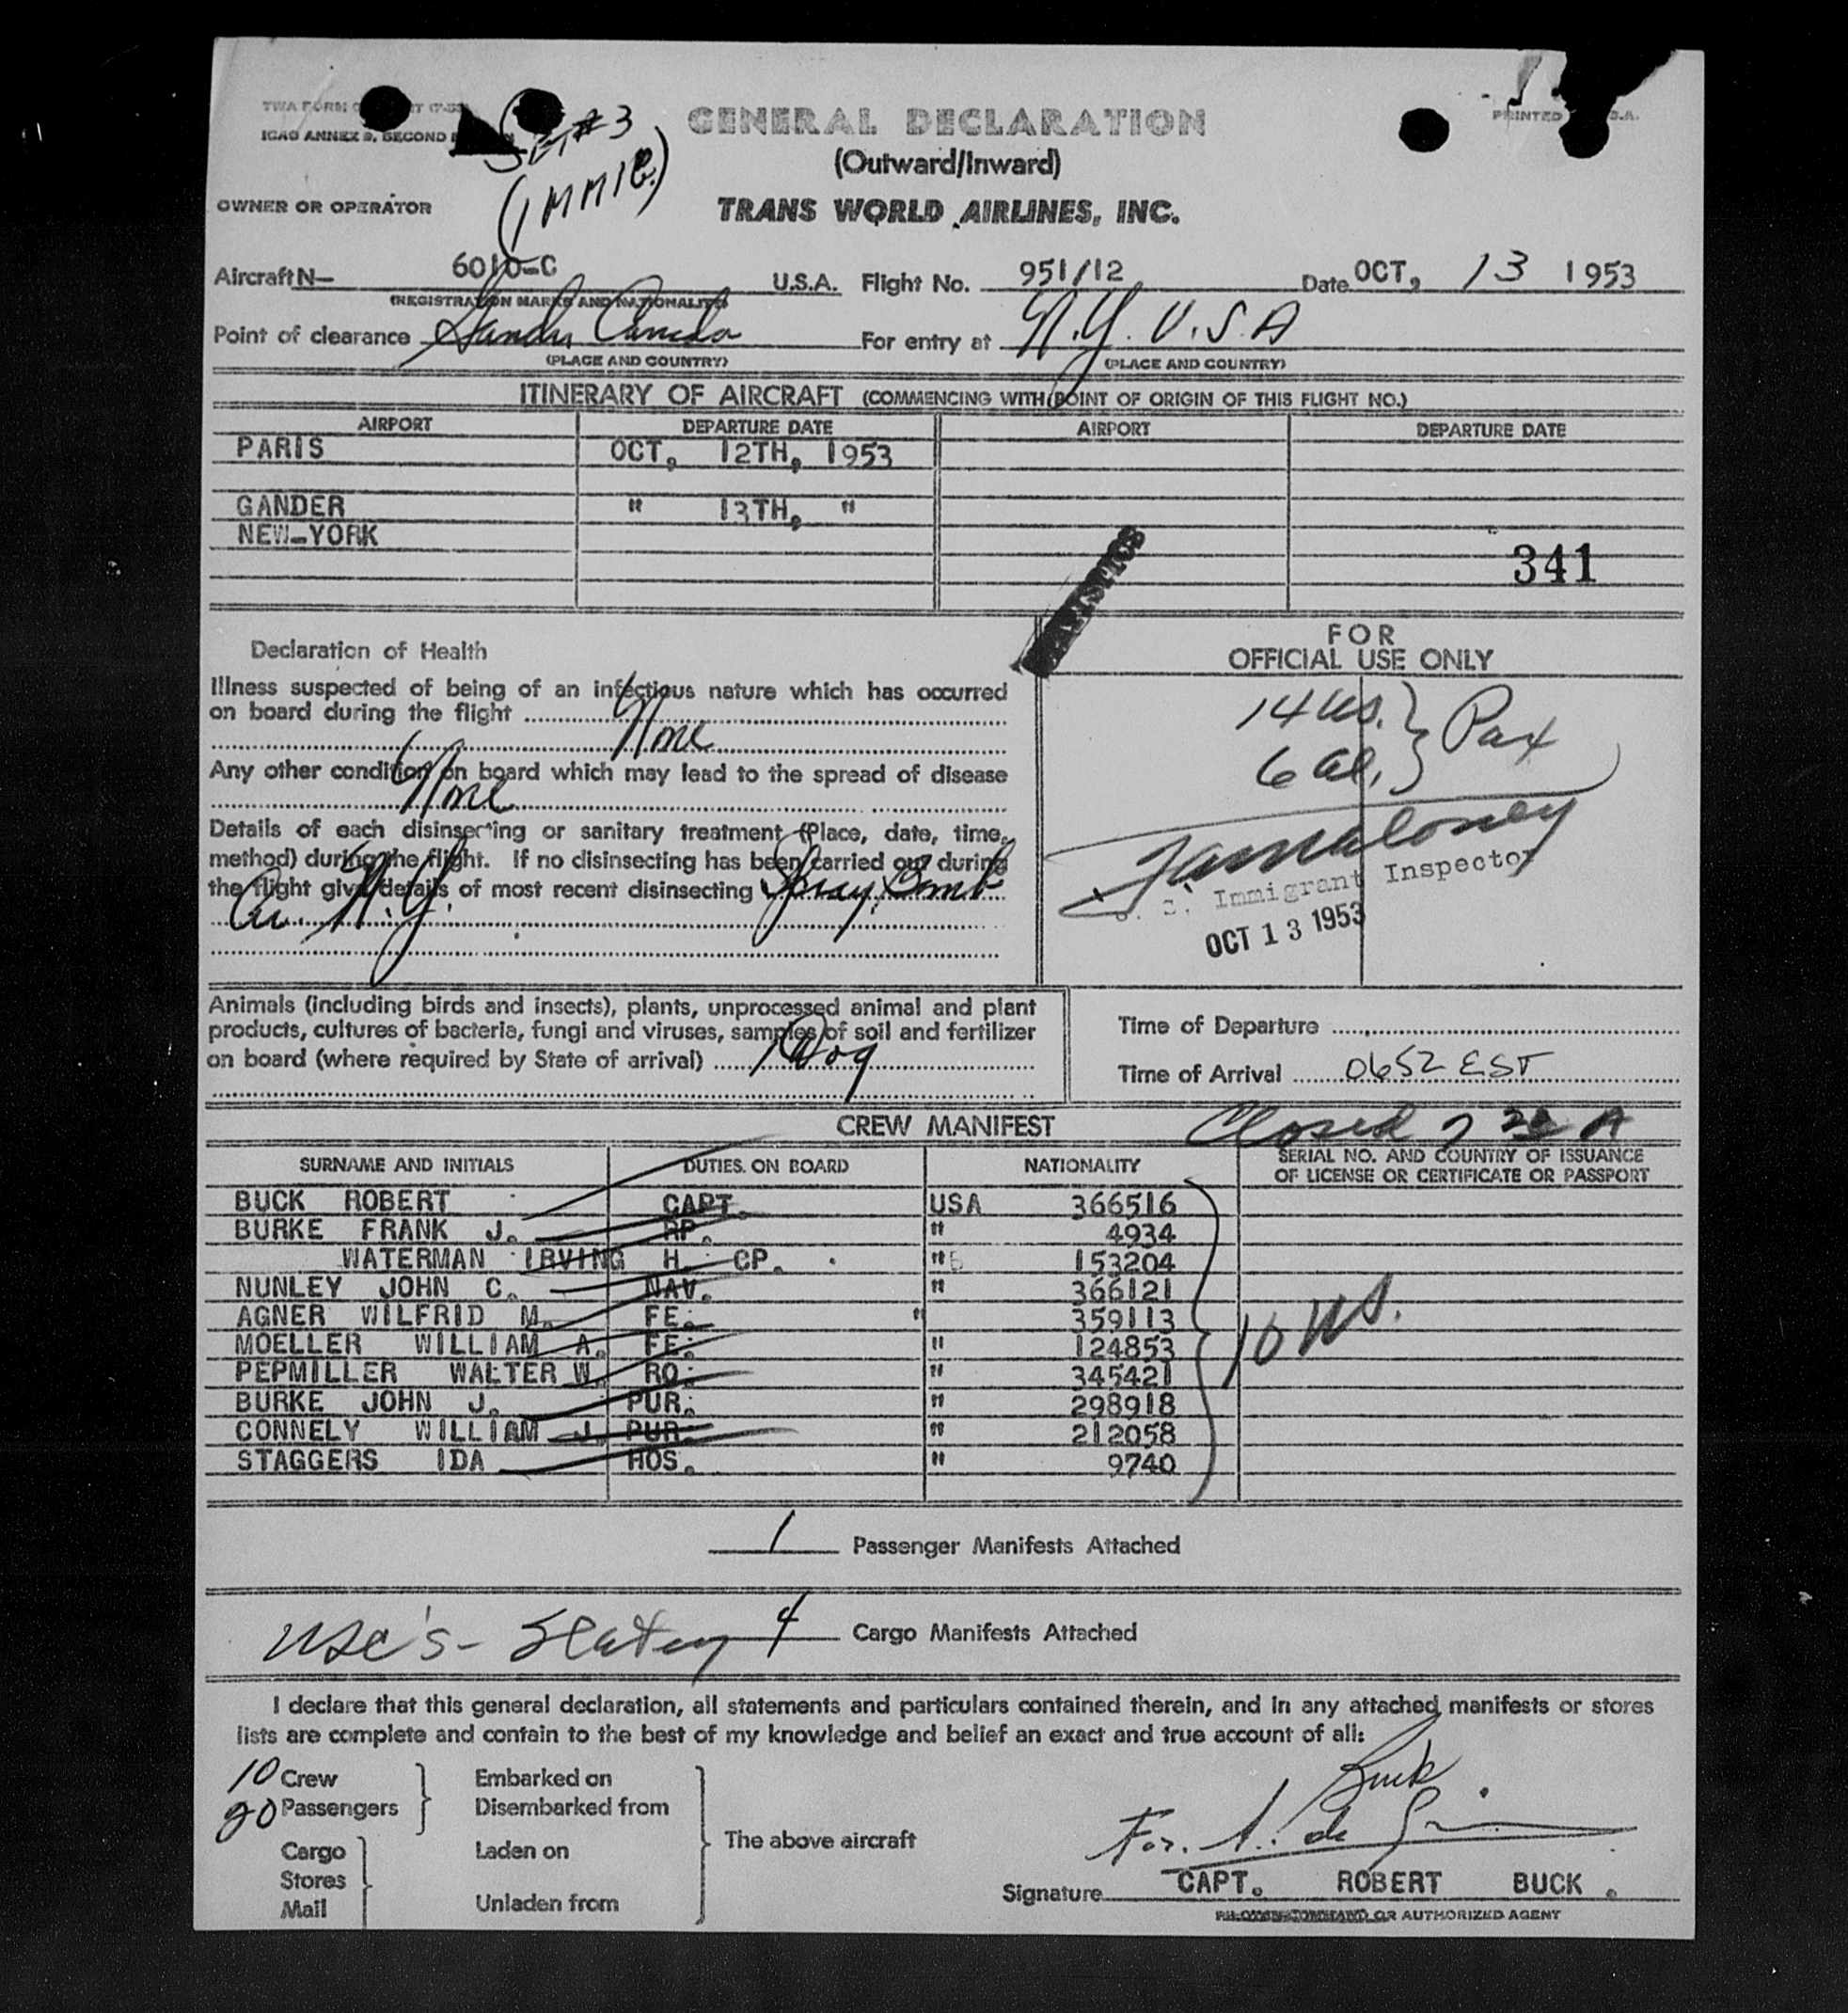 TWA FORM
ICAO ANNEX 9, SECOND
#3
(IMMIG.)
PRINTED U.S.A.
GENERAL DECLARATION
(Outward/Inward)
OWNER OR OPERATOR
TRANS WORLD AIRLINES, INC.
Aircraft N— 6010-C U.S.A. Flight No. 951/12 Date OCT, 13 1953
(REGISTRATION MARKS AND NATIONALITY)
Point of clearance Gander Canada For entry at N.Y. U.S.A
(PLACE AND COUNTRY) (PLACE AND COUNTRY)
ITINERARY OF AIRCRAFT (COMMENCING WITH POINT OF ORIGIN OF THIS FLIGHT NO.)
AIRPORT DEPARTURE DATE AIRPORT DEPARTURE DATE
PARIS OCT, 12TH, 1953
GANDER " 13TH, "
NEW-YORK
341
STATISTICS
Declaration of Health
Illness suspected of being of an infectious nature which has occurred
on board during the flight
None
Any other condition on board which may lead to the spread of disease
None
Details of each disinsecting or sanitary treatment (Place, date, time,
method) during the flight. If no disinsecting has been carried out during
the flight give details of most recent disinsecting Spray Bomb
Arr. N.Y.
FOR
OFFICIAL USE ONLY
14 US. } Pax
6 Al. }
Maloney
U. S. Immigrant Inspector
OCT 13 1953
Animals (including birds and insects), plants, unprocessed animal and plant
products, cultures of bacteria, fungi and viruses, samples of soil and fertilizer
on board (where required by State of arrival) 1 Dog
Time of Departure
Time of Arrival 0652 EST
CREW MANIFEST
Closed 7 A
SURNAME AND INITIALS DUTIES ON BOARD NATIONALITY SERIAL NO. AND COUNTRY OF ISSUANCE
OF LICENSE OR CERTIFICATE OR PASSPORT
BUCK ROBERT CAPT. USA 366516
BURKE FRANK J. RP. " 4934
WATERMAN IRVING H. CP. " 153204
NUNLEY JOHN C. NAV. " 366121
AGNER WILFRID M. FE. " 359113
MOELLER WILLIAM A. FE. " 124853
PEPMILLER WALTER W. RO. " 345421
BURKE JOHN J. PUR. " 298918
CONNELY WILLIAM J. PUR. " 212058
STAGGERS IDA HOS. " 9740
10 US.
1 Passenger Manifests Attached
USC's - Slattery 4 Cargo Manifests Attached
I declare that this general declaration, all statements and particulars contained therein, and in any attached manifests or stores
lists are complete and contain to the best of my knowledge and belief an exact and true account of all:
10 Crew
20 Passengers
Embarked on
Disembarked from
Cargo
Stores
Mail
Laden on
Unladen from
The above aircraft
Buck
For. A. de
Signature CAPT. ROBERT BUCK .
PILOT-IN-COMMAND OR AUTHORIZED AGENT